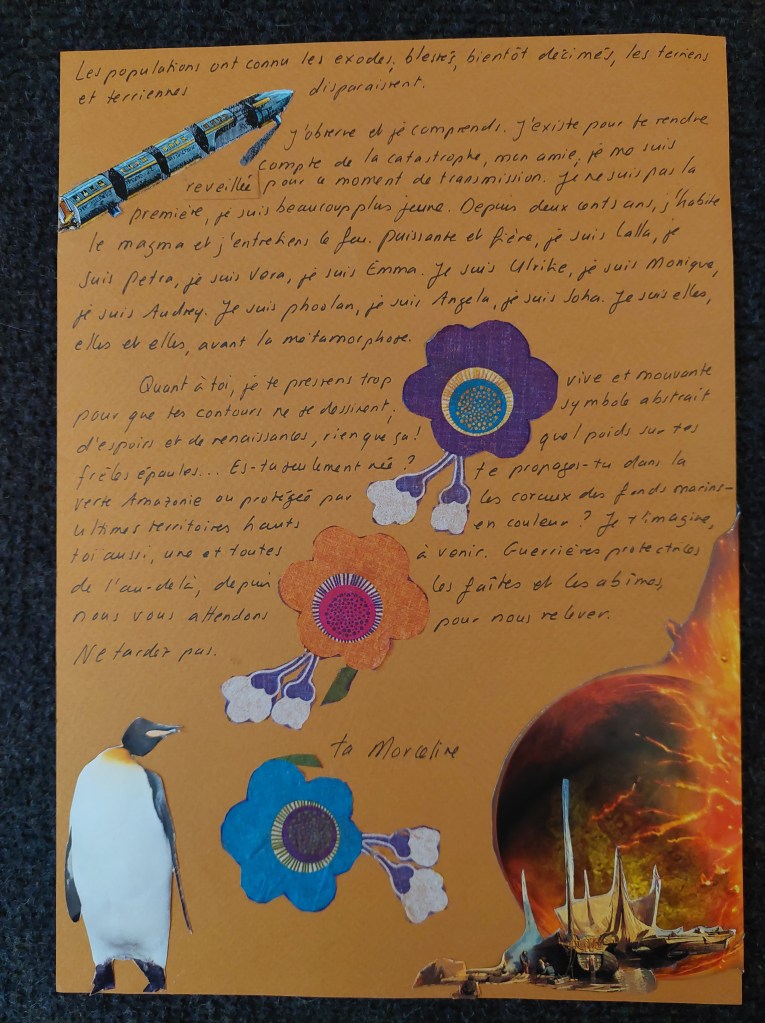 Les populations ont connu les exodes, blessés, bientôt décimés, les terriens
et terriennes disparaissent.
J'observe et je comprends. J'existe pour te rendre
compte de la catastrophe, mon amie, je me suis
reveillée pour ce moment de transmission. Je ne suis pas la
première, je suis beaucoup plus jeune. Depuis deux cents ans, j'habite
le magma et j'entretiens le feu. Puissante et fière, je suis Lalla, je
suis Petra, je suis Vera, je suis Emma. Je suis Ulrike, je suis Monique,
je suis Audrey. Je suis phoolan, je suis Angela, je suis Joha. Je suis elles,
elles et elles, avant la métamorphose.
Quant à toi, je te pressens trop vive et mouvante
pour que tes contours ne se dessinent, symbole abstrait
d'espoirs et de renaissances, rien que ça ! quel poids sur tes
frêles épaules... Es-tu seulement née ? te propages-tu dans la
verte Amazonie ou protégée par les coraux des fonds marins -
ultimes territoires hauts en couleur ? Je t'imagine,
toi aussi, une et toutes à venir. Guerrières protectrices
de l'au-delà, depuis les faîtes et les abîmes,
nous vous attendons pour nous relever.
Ne tardez pas.
ta Marceline